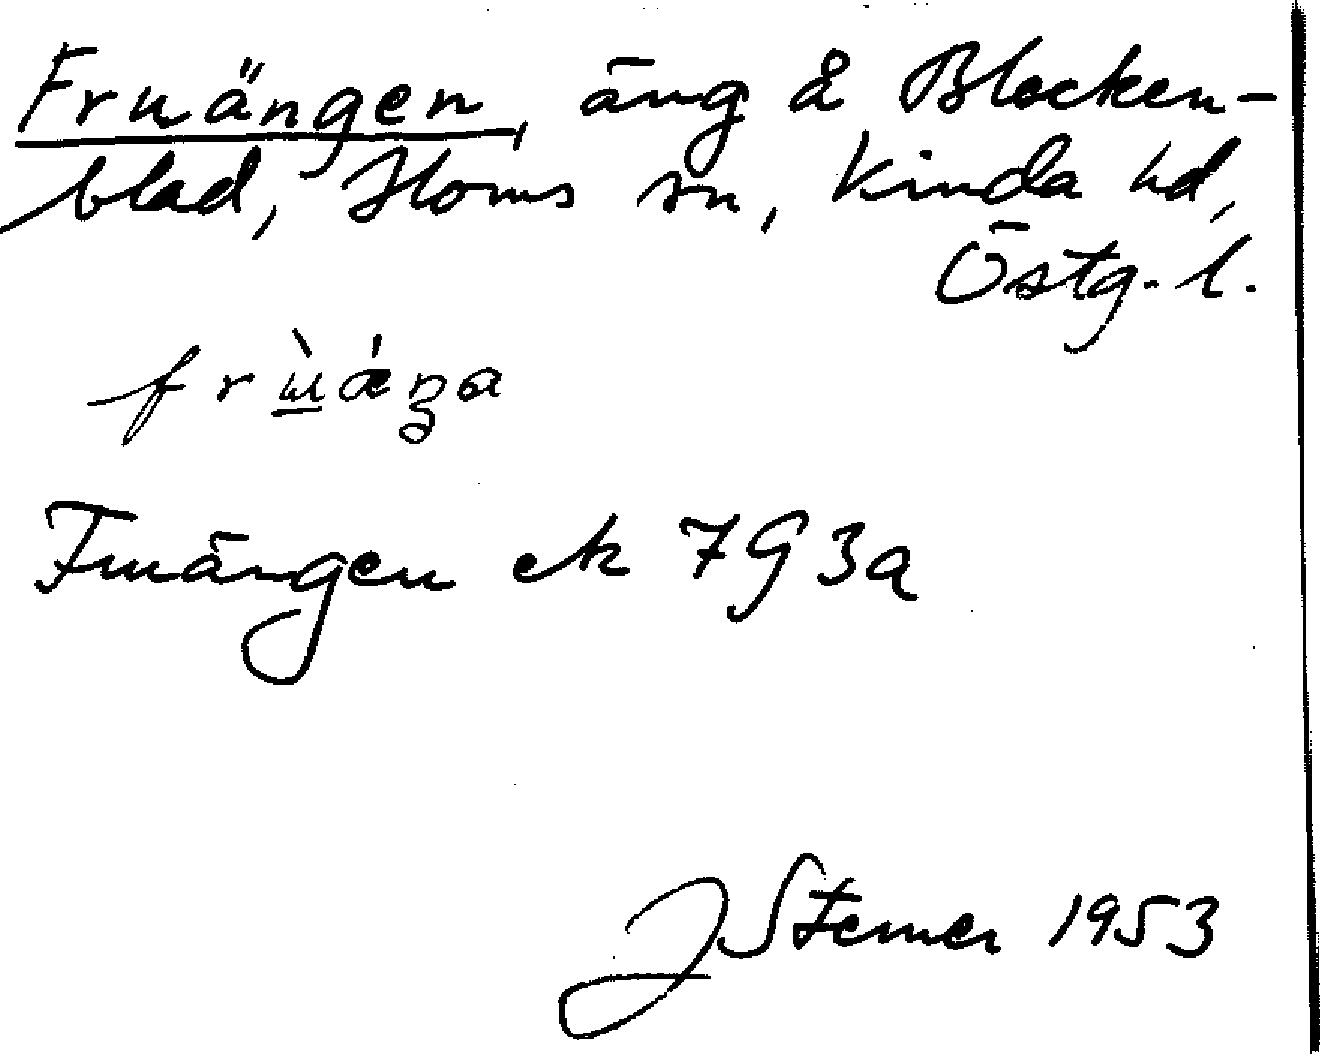 Fruängen, äng å Blocken-
blad, Horns sn, Kinda hd,
Östg. l.
frùǽŋa
Fruängen ek 7G3a
J Sterner 1953